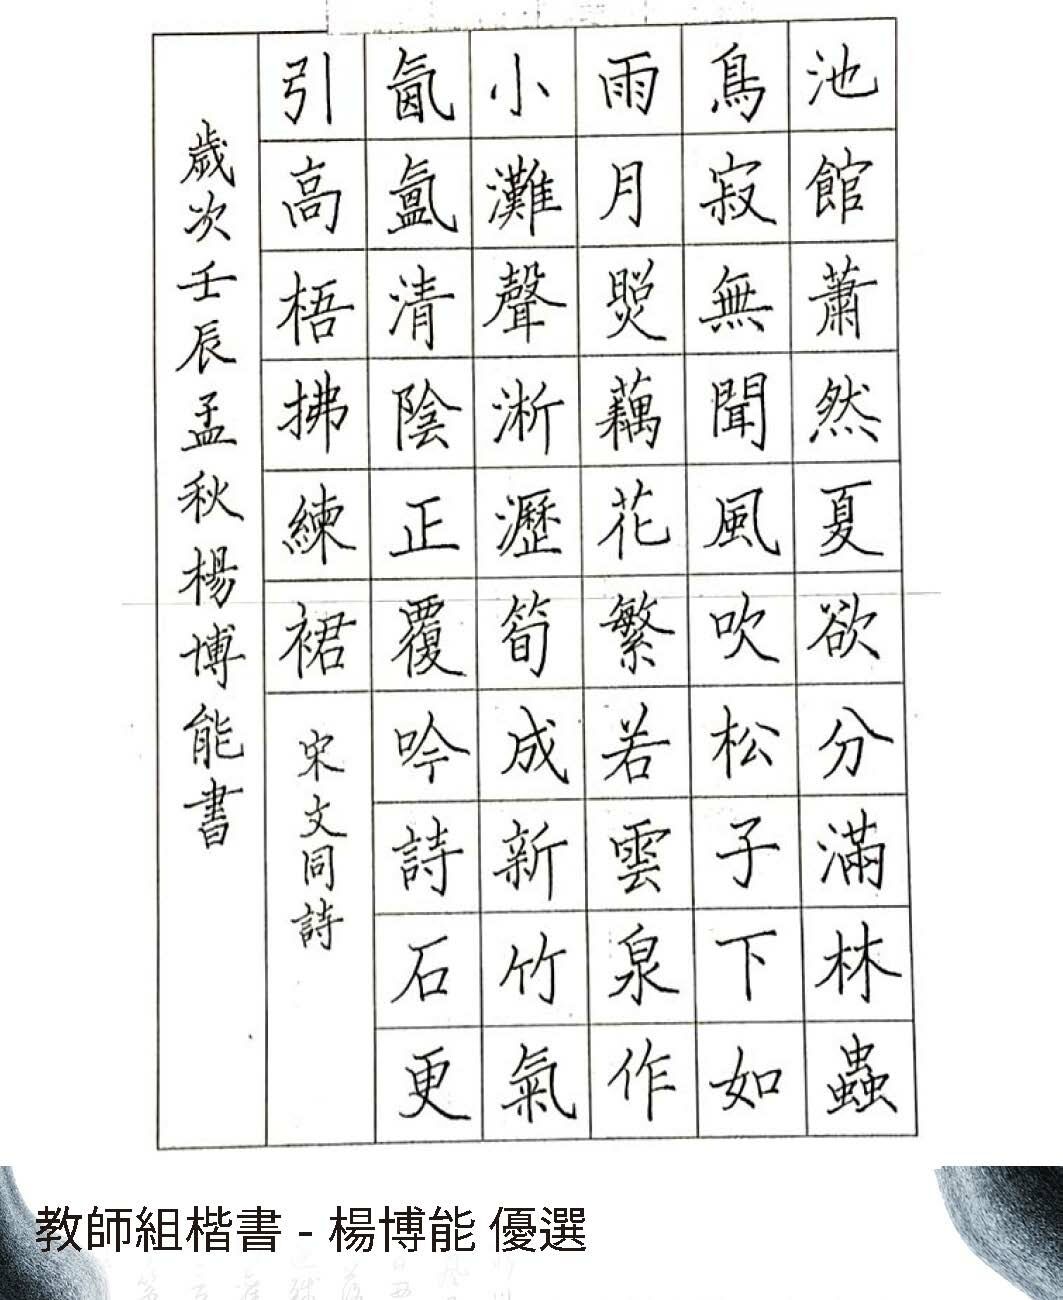 池館蕭然夏欲分滿林蟲
鳥寂無聞風吹松子下如
雨月㷖藕花繁若雲泉作
小灘聲淅瀝筍成新竹氣
氤氳清陰正覆吟詩石更
引高梧拂練裙
宋文同詩
歲次壬辰孟秋楊博能書
教師組楷書 - 楊博能 優選